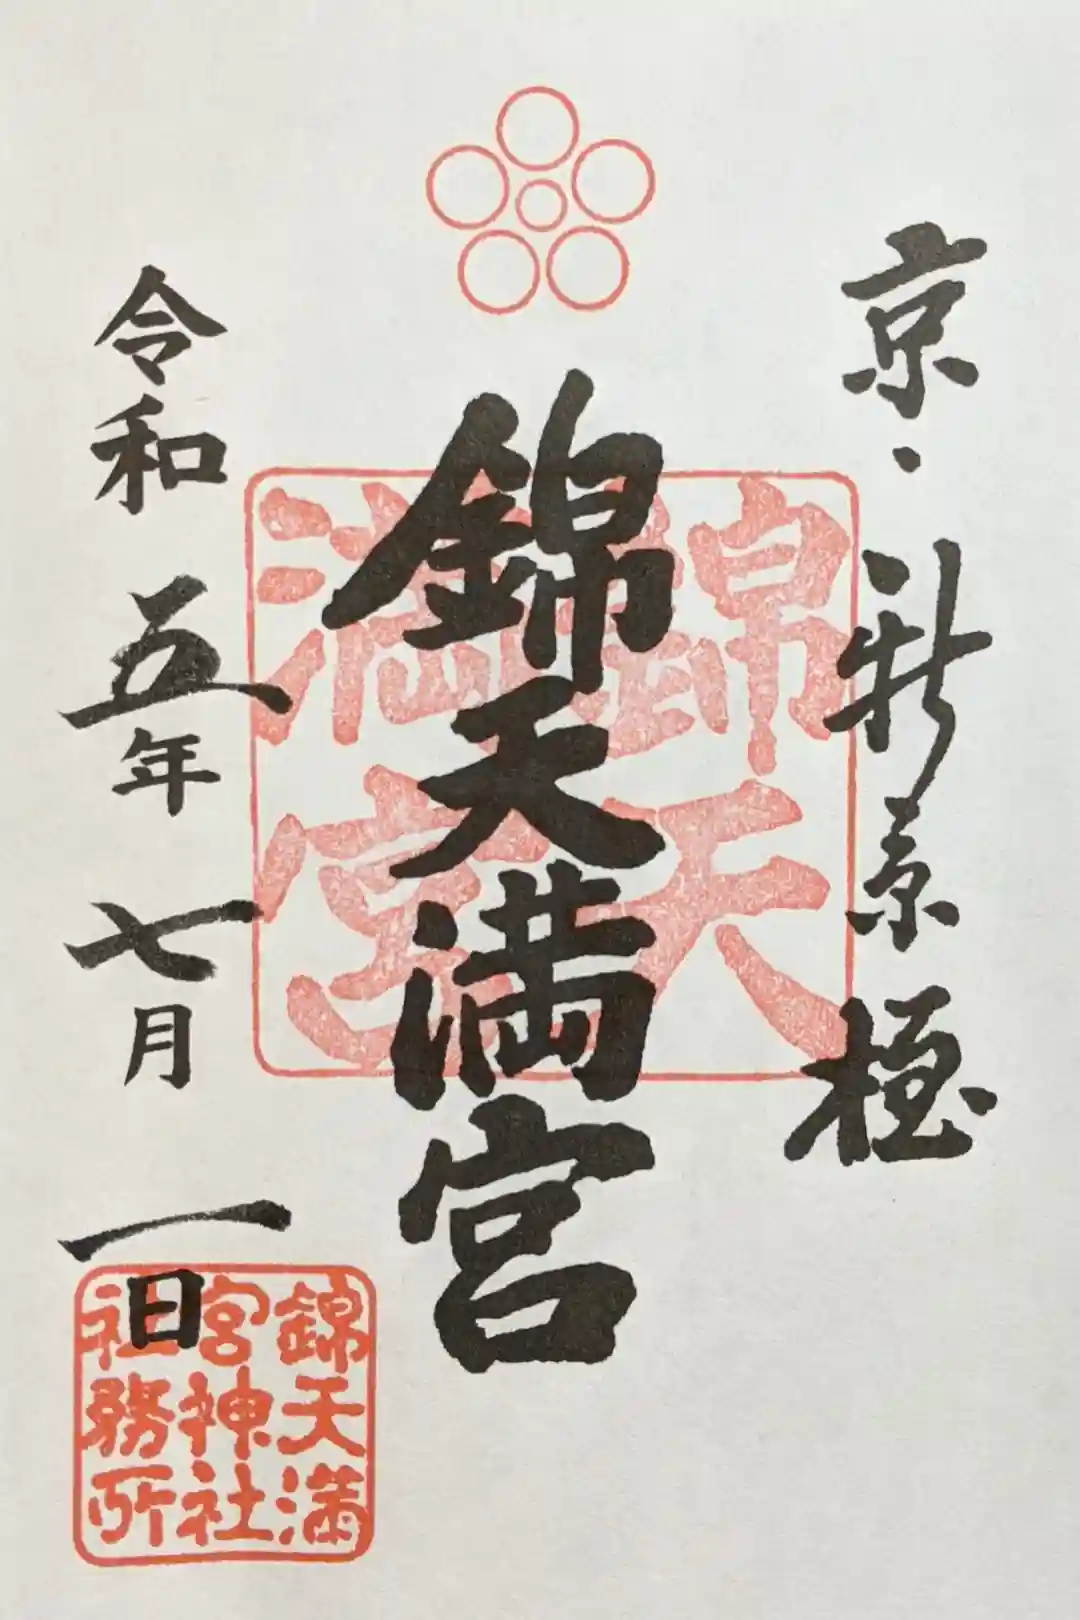 京・新京極
錦天満宮
錦天満宮
令和五年七月一日
錦天満
宮神社
社務所